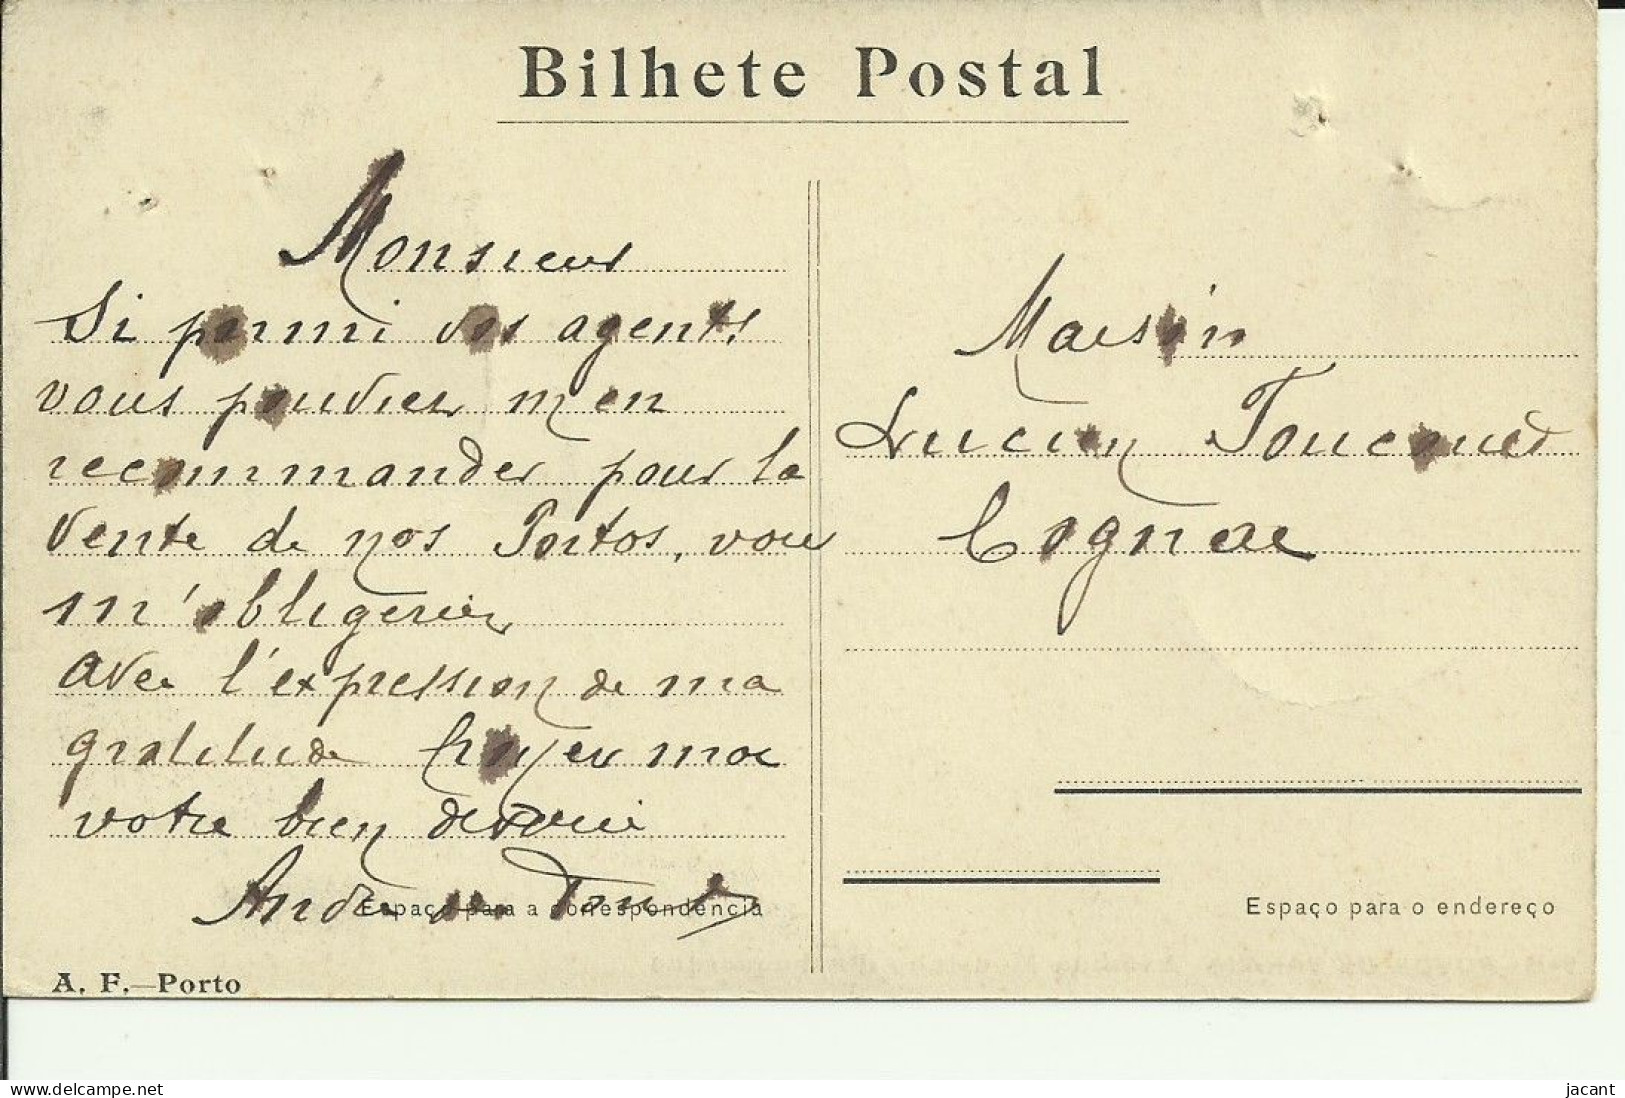 Bilhete Postal
Monsieur
Si parmi vos agents,
vous pouviez m'en
recommander pour la
vente de nos Portos, vous
m'obligeriez
avec l'expression de ma
gratitude Croyez moi
votre bien dévoué
Espaço para a correspondencia
A. F.—Porto
Maison
Lucien Foucauld
Cognac
Espaço para o endereço
jacant